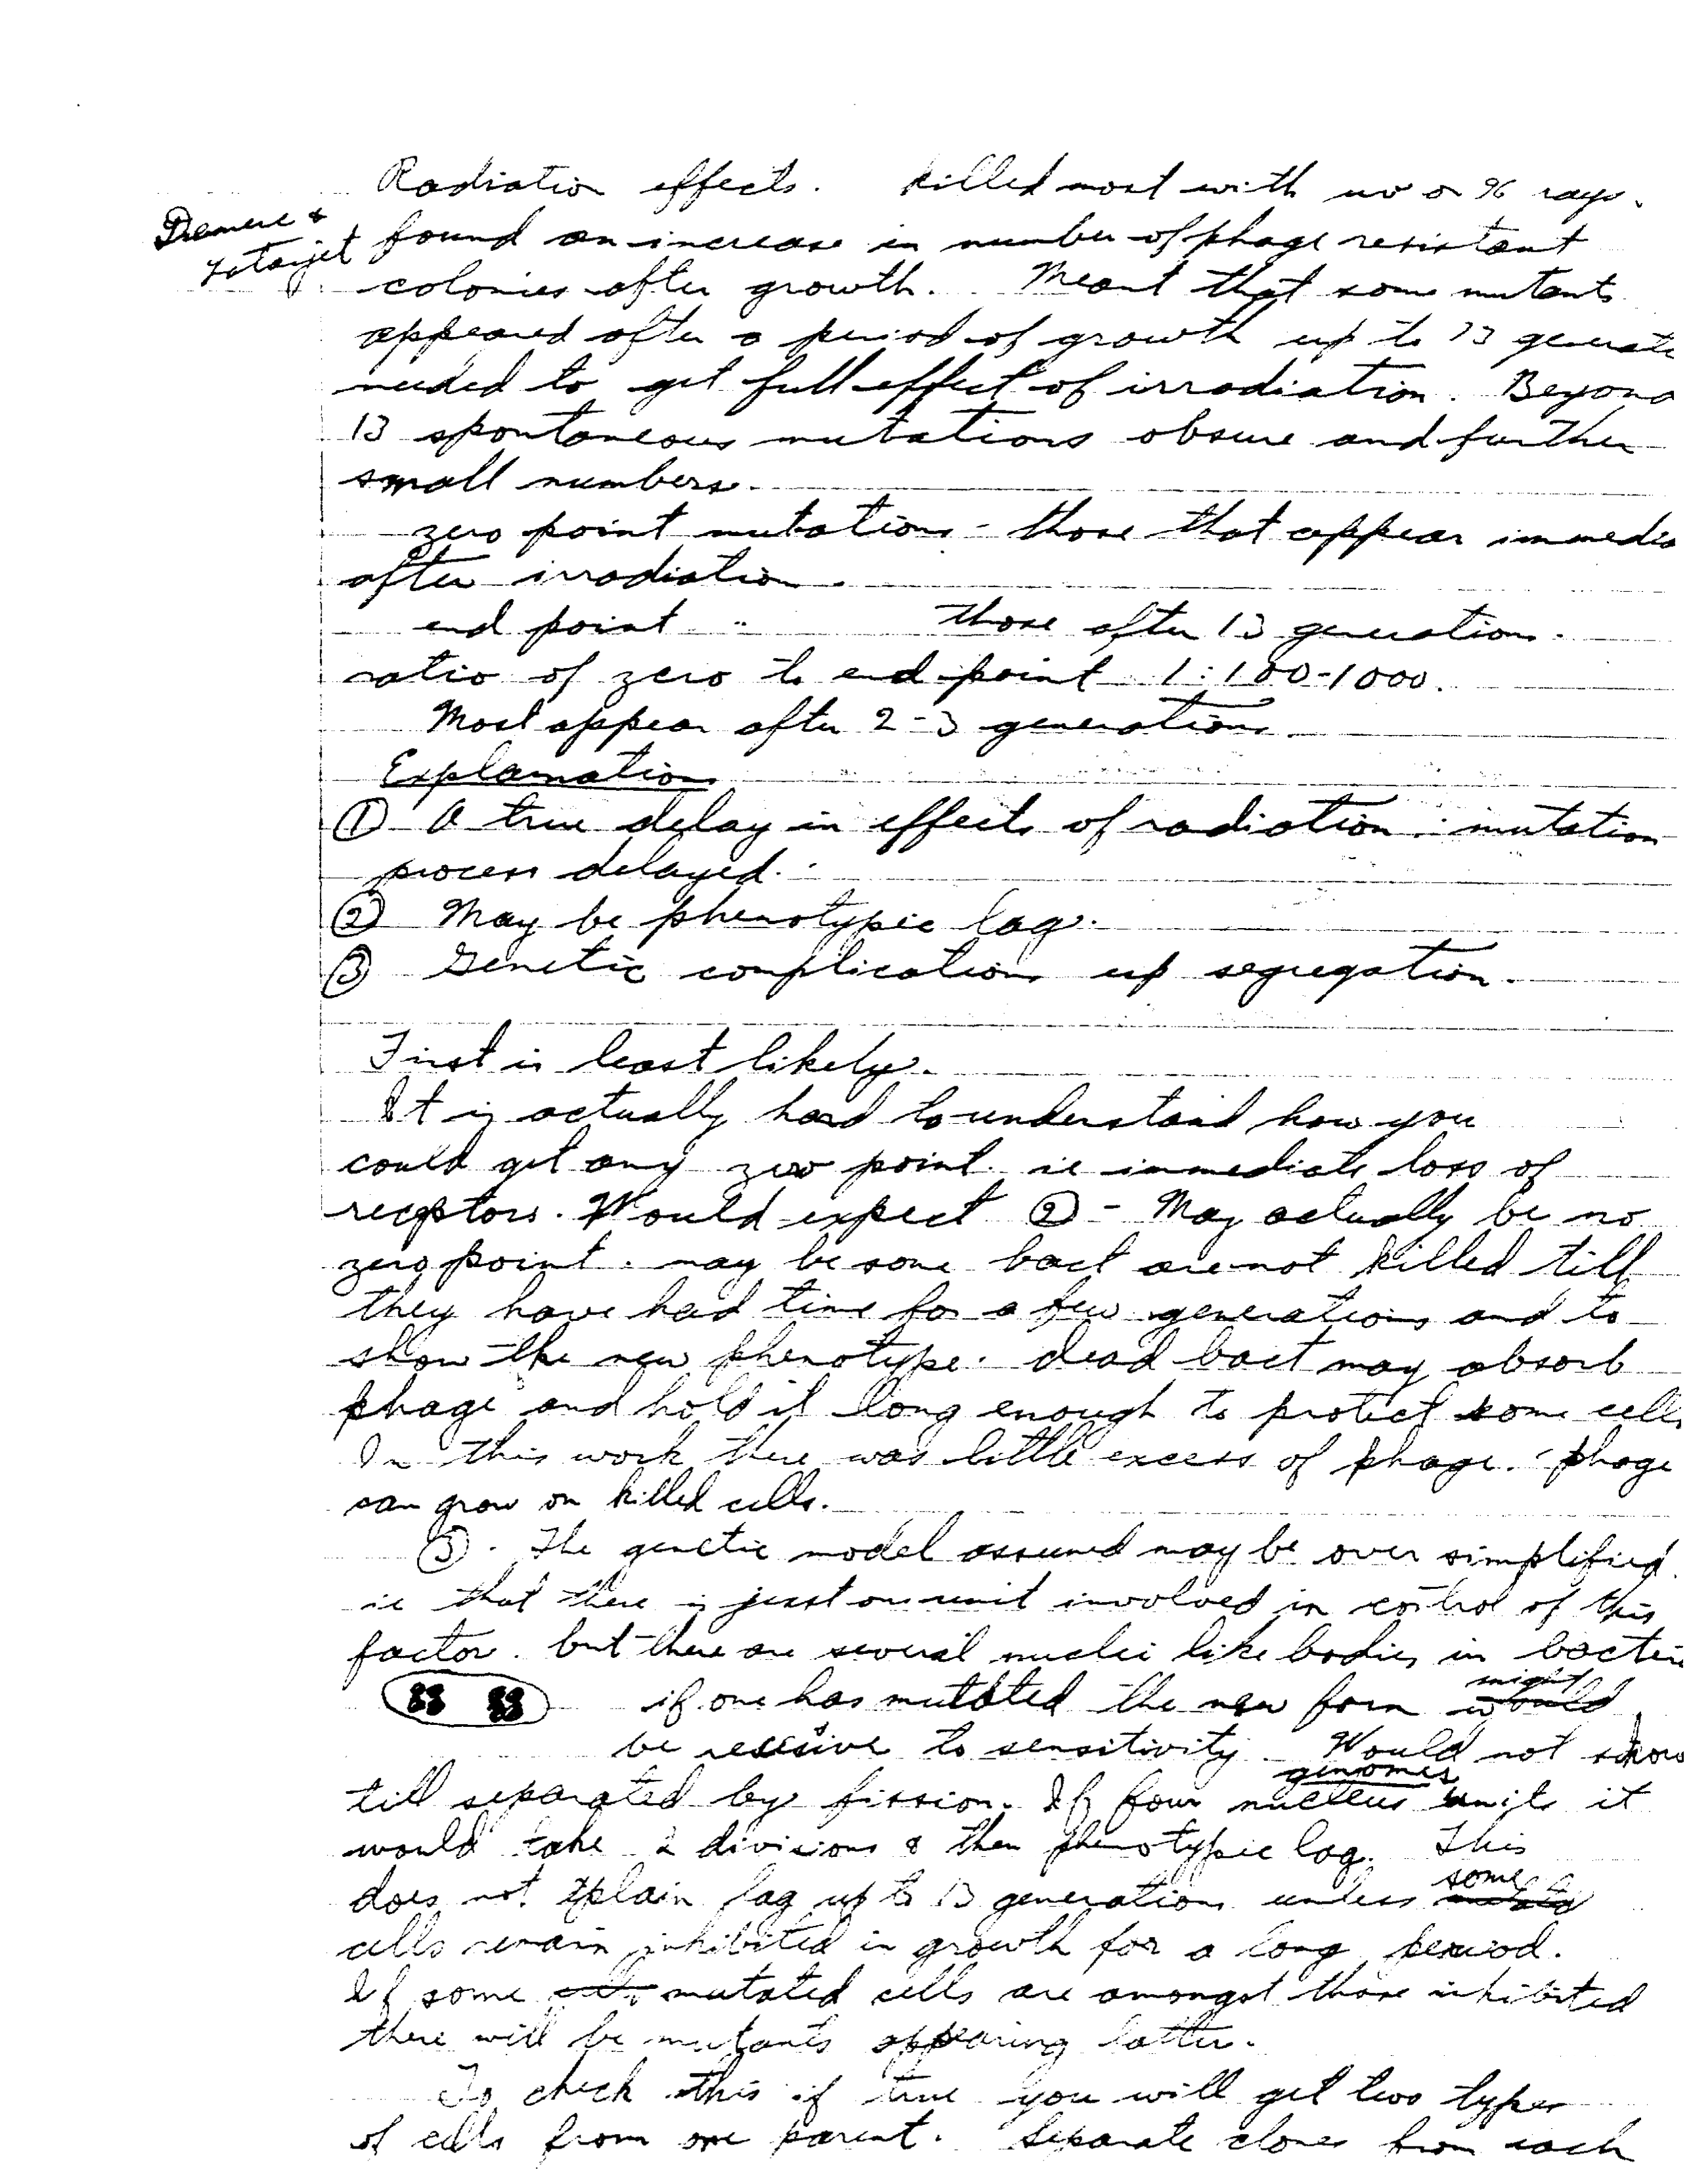 Radiation effects. killed most with uv or x rays.
Demerec &
Latarjet found an increase in number of phage resistant
colonies after growth. Meant that some mutants
appeared after a period of growth up to 13 generati
needed to get full effect of irradiation. Beyond
13 spontaneous mutations obsure and further
small numbers.
zero point mutations - those that appear immedia
after irradiation.
end point " those after 13 generations.
ratio of zero to end point 1:100-1000.
Most appear after 2-3 generations.
Explanations
① A true delay in effects of radiation : mutation
process delayed.
② May be phenotypic lag.
③ Genetic complications up segregation.
First is least likely.
It is actually hard to understand how you
could get any zero point. ie immediate loss of
receptors. Would expect ② - May actually be no
zero point. may be some bact are not killed till
they have had time for a few generations and to
show the new phenotype. dead bact may absorb
phage and hold it long enough to protect some cells
In this work there was little excess of phage. phage
can grow on killed cells.
③. The genetic model assumed may be over simplified.
ie that there is just one unit involved in control of this
factor. but there are several nuclei like bodies in bacteri
if one has mutated the new form would might
be recessive to sensitivity. Would not show
till separated by fission. If four nucleus genomes units it
would take 2 divisions & then phenotypic lag. This
does not explain lag up to 13 generations unless some
cells remain inhibited in growth for a long period.
If some cells mutated cells are amongst those inhibited
there will be mutants appearing latter.
To check this if true you will get two types
of cells from one parent. Separate clones from each